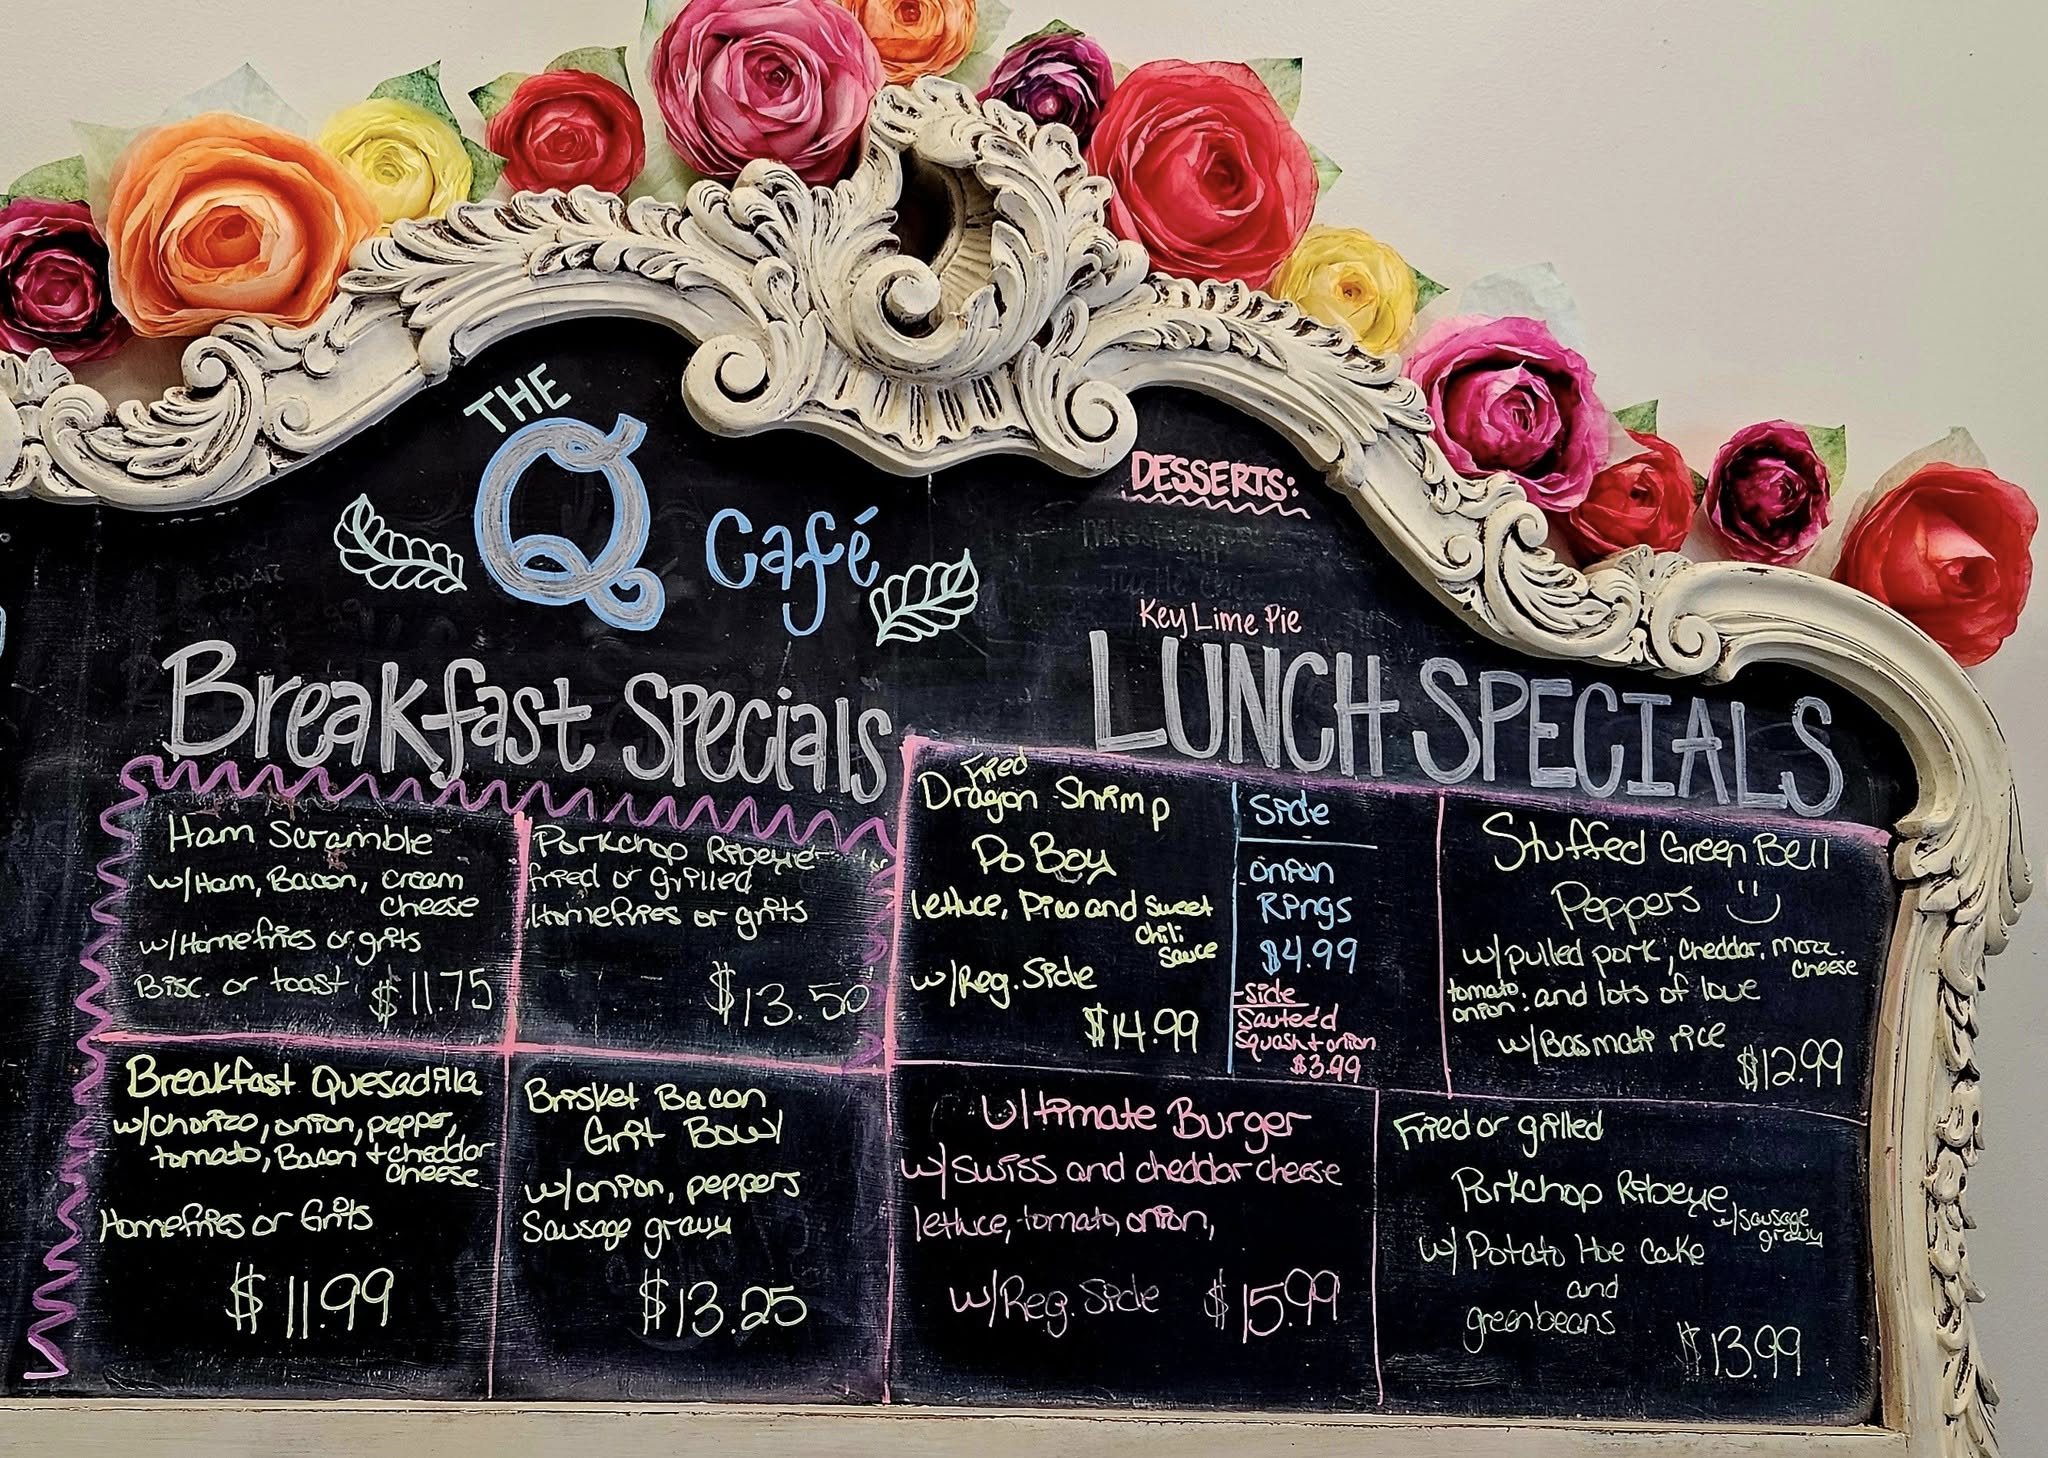 THE
Q Café
Breakfast Specials
Ham Scramble
w/Ham, Bacon, cream
cheese
w/Homefries or grits
Bisc. or toast
$11.75
Porkchop Ribeye
fried or Grilled
Homefries or grits
$13.50
Breakfast Quesadilla
w/chorizo, onion, pepper,
tomato, Bacon + cheddar
cheese
Homefries or Grits
$11.99
Brisket Bacon
Grit Bowl
w/onion, peppers
Sausage gravy
$13.25
DESSERTS:
Key Lime Pie
LUNCH SPECIALS
Fried
Dragon Shrimp
Po Boy
lettuce, Pico and sweet
chili
sauce
w/Reg. Side
$14.99
Side
onion
Rings
$4.99
Side
Sauteéd
Squash + onion
$3.99
Stuffed Green Bell
Peppers
w/pulled pork, cheddar, mozz.
cheese
tomato, and lots of love
onion
w/Basmati rice
$12.99
Ultimate Burger
w/swiss and cheddar cheese
lettuce, tomato, onion,
w/Reg. Side $15.99
Fried or grilled
Porkchop Ribeye
w/sausage
gravy
w/Potato Hoe cake
and
greenbeans
$13.99